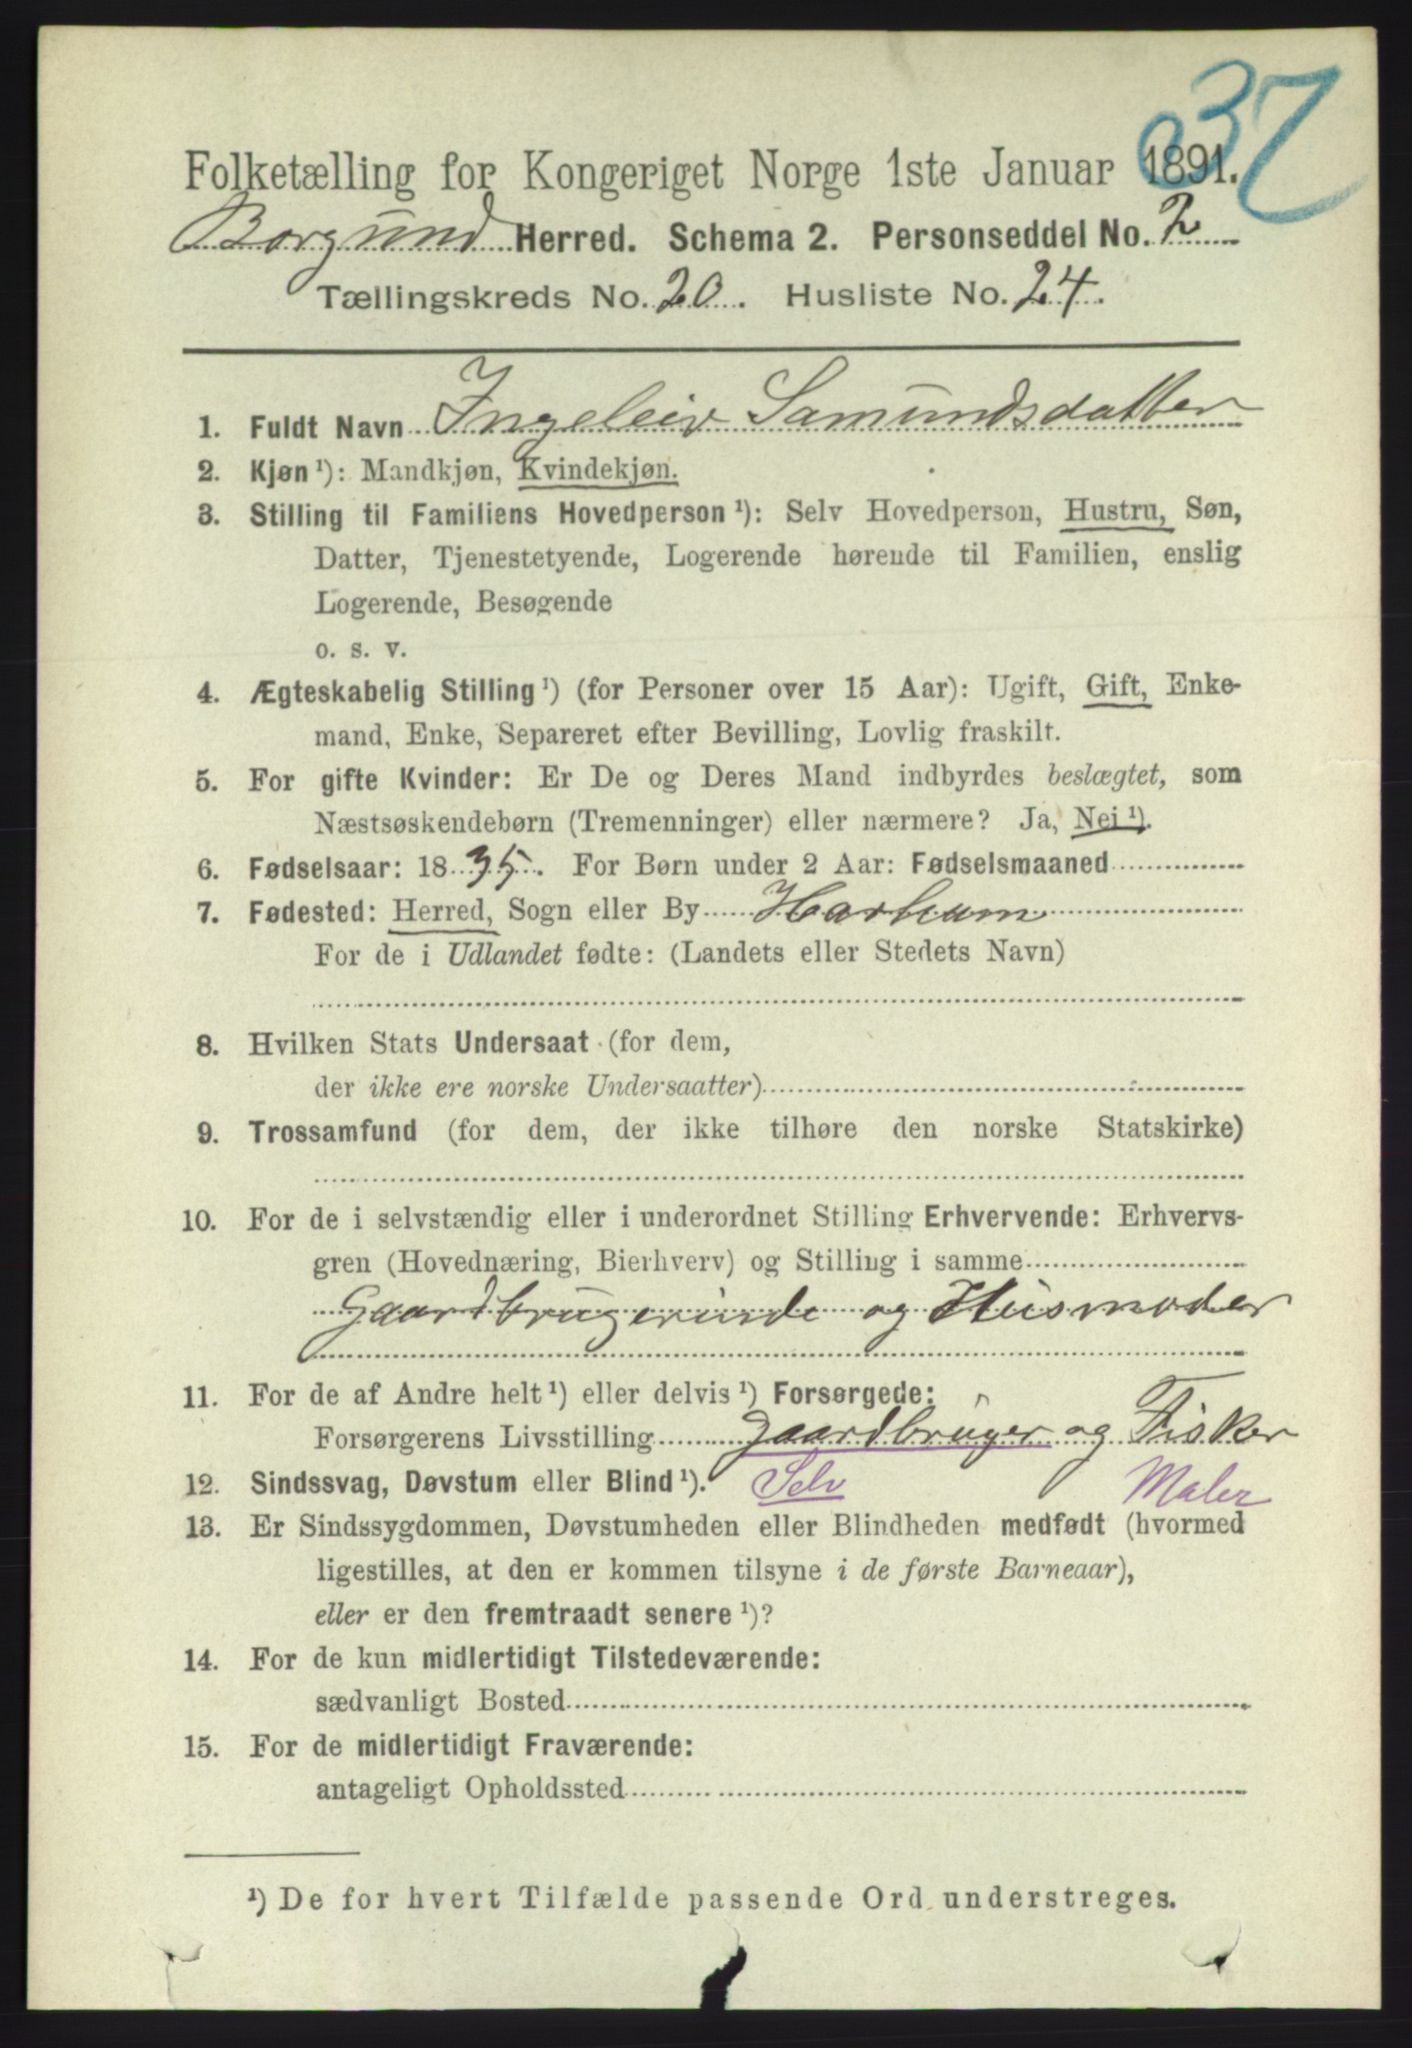 37
Folketælling for Kongeriget Norge 1ste Januar 1891.
Borgund Herred. Schema 2. Personseddel No. 2
Tællingskreds No. 20. Husliste No. 24.
1. Fuldt Navn Ingeleiv Samundsdatter
2. Kjøn ¹): Mandkjøn, Kvindekjøn.
3. Stilling til Familiens Hovedperson ¹): Selv Hovedperson, Hustru, Søn,
Datter, Tjenestetyende, Logerende hørende til Familien, enslig
Logerende, Besøgende
o. s. v.
4. Ægteskabelig Stilling ¹) (for Personer over 15 Aar): Ugift, Gift, Enke-
mand, Enke, Separeret efter Bevilling, Lovlig fraskilt.
5. For gifte Kvinder: Er De og Deres Mand indbyrdes beslægtet, som
Næstsøskendebørn (Tremenninger) eller nærmere? Ja, Nei ¹).
6. Fødselsaar: 1835. For Børn under 2 Aar: Fødselsmaaned
7. Fødested: Herred, Sogn eller By Harham
For de i Udlandet fødte: (Landets eller Stedets Navn)
8. Hvilken Stats Undersaat (for dem,
der ikke ere norske Undersaatter)
9. Trossamfund (for dem, der ikke tilhøre den norske Statskirke)
10. For de i selvstændig eller i underordnet Stilling Erhvervende: Erhvervs-
gren (Hovednæring, Bierhverv) og Stilling i samme
Gaardbrugerinde og Husmoder
11. For de af Andre helt ¹) eller delvis ¹) Forsørgede:
Forsørgerens Livsstilling gaardbruger og Fisker
12. Sindssvag, Døvstum eller Blind ¹). Selv Maler
13. Er Sindssygdommen, Døvstumheden eller Blindheden medfødt (hvormed
ligestilles, at den er kommen tilsyne i de første Barneaar),
eller er den fremtraadt senere ¹)?
14. For de kun midlertidigt Tilstedeværende:
sædvanligt Bosted
15. For de midlertidigt Fraværende:
antageligt Opholdssted
¹) De for hvert Tilfælde passende Ord understreges.